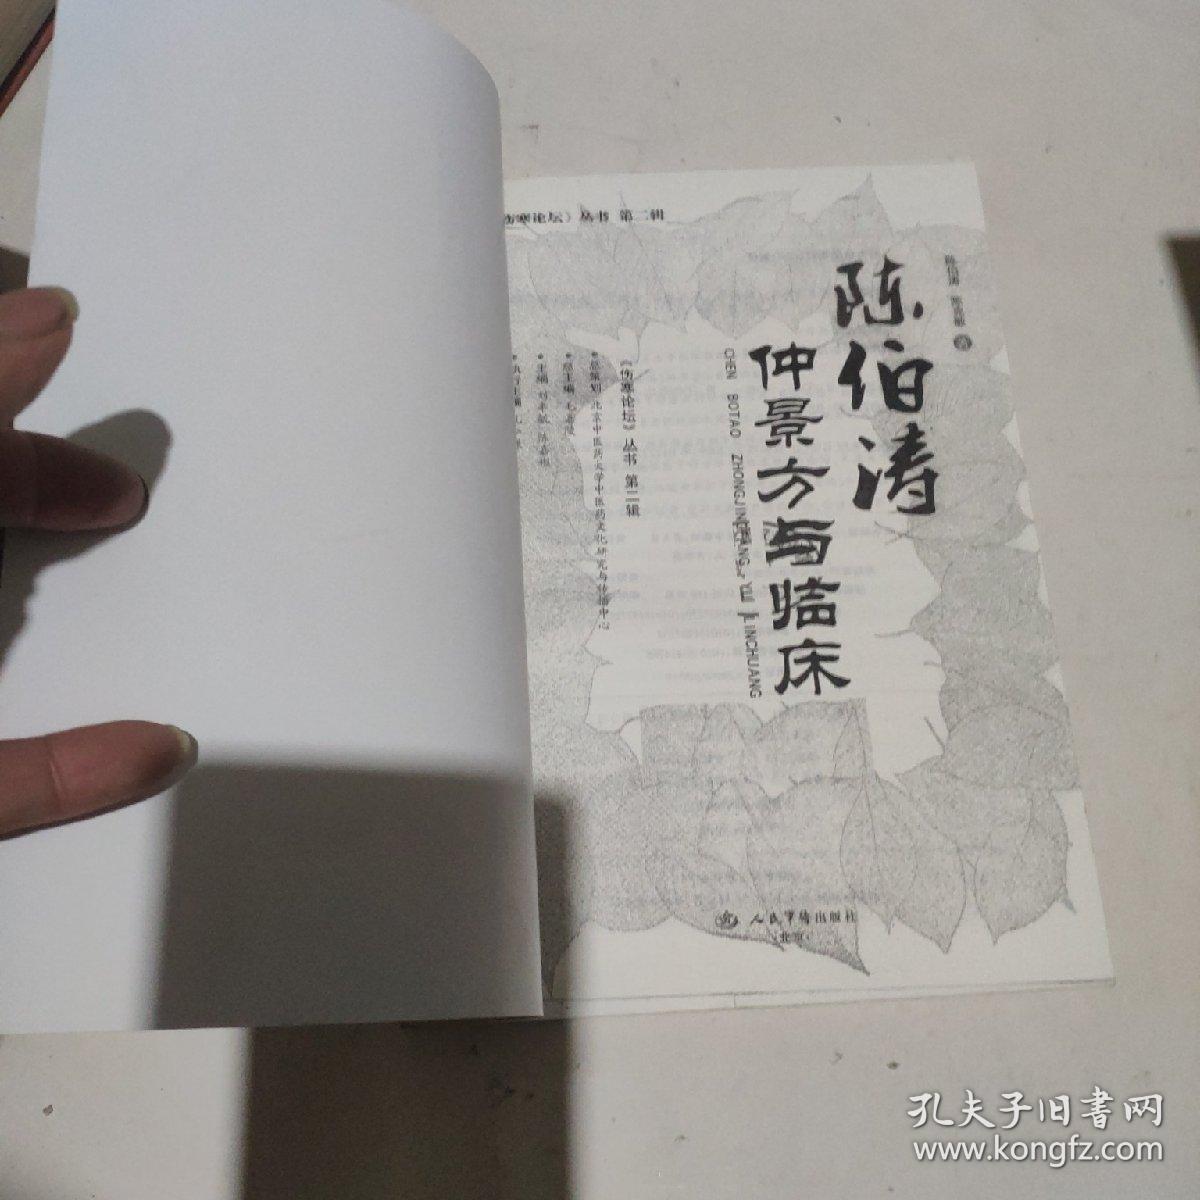 伤寒论坛》丛书 第二辑
陈伯涛
仲景方与临床
CHEN BOTAO ZHONGJINGFANG YU LINCHUANG
《伤寒论坛》丛书 第二辑
●总策划 北京中医药大学中医药文化研究与传播中心
●总主编
●主编
人民军医出版社
北京
孔夫子旧書网
www.kongfz.com